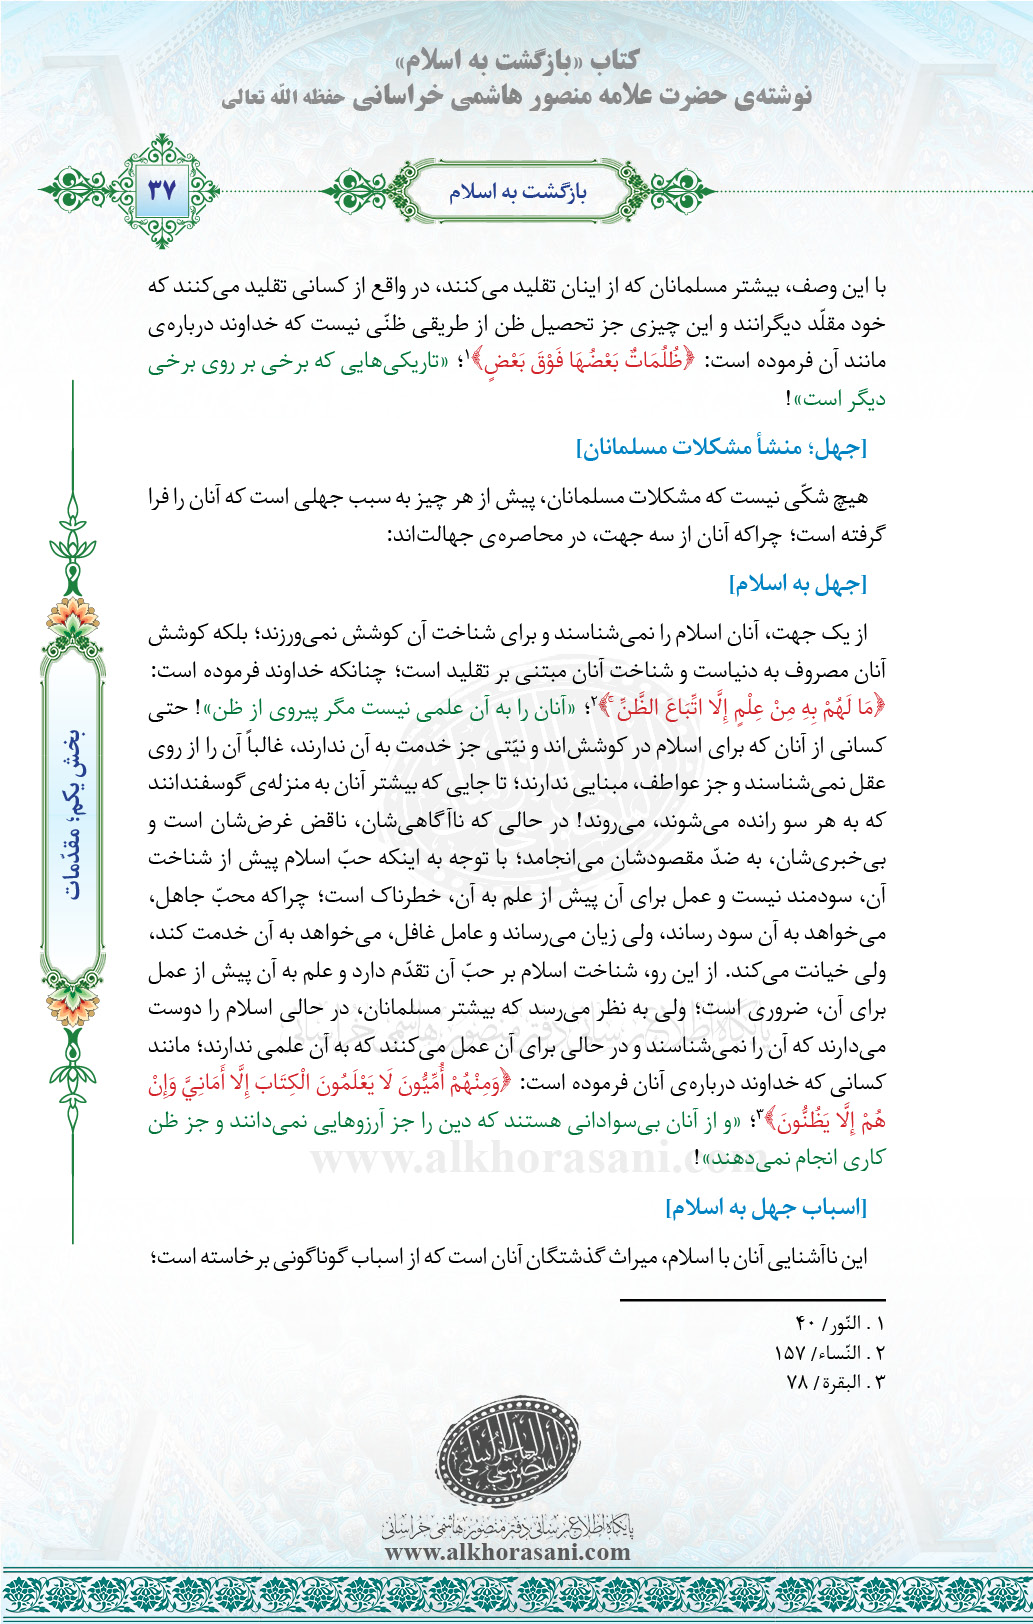 کتاب «بازگشت به اسلام»
نوشته‌ی حضرت علامه منصور هاشمی خراسانی حفظه الله تعالی
۳۷
بازگشت به اسلام
با این وصف، بیشتر مسلمانان که از اینان تقلید می‌کنند، در واقع از کسانی تقلید می‌کنند که
خود مقلّد دیگرانند و این چیزی جز تحصیل ظن از طریقی ظنّی نیست که خداوند درباره‌ی
مانند آن فرموده است: ﴿ظُلُمَاتٌ بَعْضُهَا فَوْقَ بَعْضٍ﴾۱؛ «تاریکی‌هایی که برخی بر روی برخی
دیگر است»!
[جهل؛ منشأ مشکلات مسلمانان]
هیچ شکّی نیست که مشکلات مسلمانان، پیش از هر چیز به سبب جهلی است که آنان را فرا
گرفته است؛ چراکه آنان از سه جهت، در محاصره‌ی جهالت‌اند:
[جهل به اسلام]
از یک جهت، آنان اسلام را نمی‌شناسند و برای شناخت آن کوشش نمی‌ورزند؛ بلکه کوشش
آنان مصروف به دنیاست و شناخت آنان مبتنی بر تقلید است؛ چنانکه خداوند فرموده است:
﴿مَا لَهُمْ بِهِ مِنْ عِلْمٍ إِلَّا اتِّبَاعَ الظَّنِّ ۚ﴾۲؛ «آنان را به آن علمی نیست مگر پیروی از ظن»! حتی
کسانی از آنان که برای اسلام در کوشش‌اند و نیّتی جز خدمت به آن ندارند، غالباً آن را از روی
عقل نمی‌شناسند و جز عواطف، مبنایی ندارند؛ تا جایی که بیشتر آنان به منزله‌ی گوسفندانند
که به هر سو رانده می‌شوند، می‌روند! در حالی که ناآگاهی‌شان، ناقض غرض‌شان است و
بی‌خبری‌شان، به ضدّ مقصودشان می‌انجامد؛ با توجه به اینکه حبّ اسلام پیش از شناخت
آن، سودمند نیست و عمل برای آن پیش از علم به آن، خطرناک است؛ چراکه محبّ جاهل،
می‌خواهد به آن سود رساند، ولی زیان می‌رساند و عامل غافل، می‌خواهد به آن خدمت کند،
ولی خیانت می‌کند. از این رو، شناخت اسلام بر حبّ آن تقدّم دارد و علم به آن پیش از عمل
برای آن، ضروری است؛ ولی به نظر می‌رسد که بیشتر مسلمانان، در حالی اسلام را دوست
می‌دارند که آن را نمی‌شناسند و در حالی برای آن عمل می‌کنند که به آن علمی ندارند؛ مانند
کسانی که خداوند درباره‌ی آنان فرموده است: ﴿وَمِنْهُمْ أُمِّيُّونَ لَا يَعْلَمُونَ الْكِتَابَ إِلَّا أَمَانِيَّ وَإِنْ
هُمْ إِلَّا يَظُنُّونَ﴾۳؛ «و از آنان بی‌سوادانی هستند که دین را جز آرزوهایی نمی‌دانند و جز ظن
کاری انجام نمی‌دهند»!
[اسباب جهل به اسلام]
این ناآشنایی آنان با اسلام، میراث گذشتگان آنان است که از اسباب گوناگونی برخاسته است؛
۱ . النّور/ ۴۰
۲ . النّساء/ ۱۵۷
۳ . البقرة/ ۷۸
بخش یکم؛ مقدّمات
پایگاه اطلاع‌رسانی دفتر منصور هاشمی خراسانی
www.alkhorasani.com
پایگاه اطلاع‌رسانی دفتر منصور هاشمی خراسانی
www.alkhorasani.com